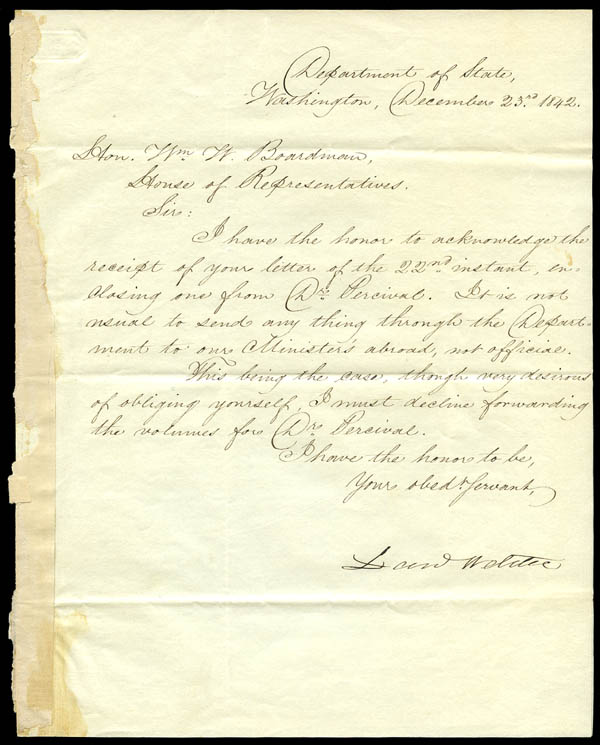 Department of State,
Washington, December 23rd 1842.
Hon. Wm W. Boardman,
House of Representatives.
Sir:
I have the honor to acknowledge the
receipt of your letter of the 22nd instant, en-
closing one from Dr. Percival. It is not
usual to send any thing through the Depart-
ment to our Ministers abroad, not official.
This being the case, though very desirous
of obliging yourself, I must decline forwarding
the volumes for Dr. Percival.
I have the honor to be,
Your obedt Servant,
Danl Webster